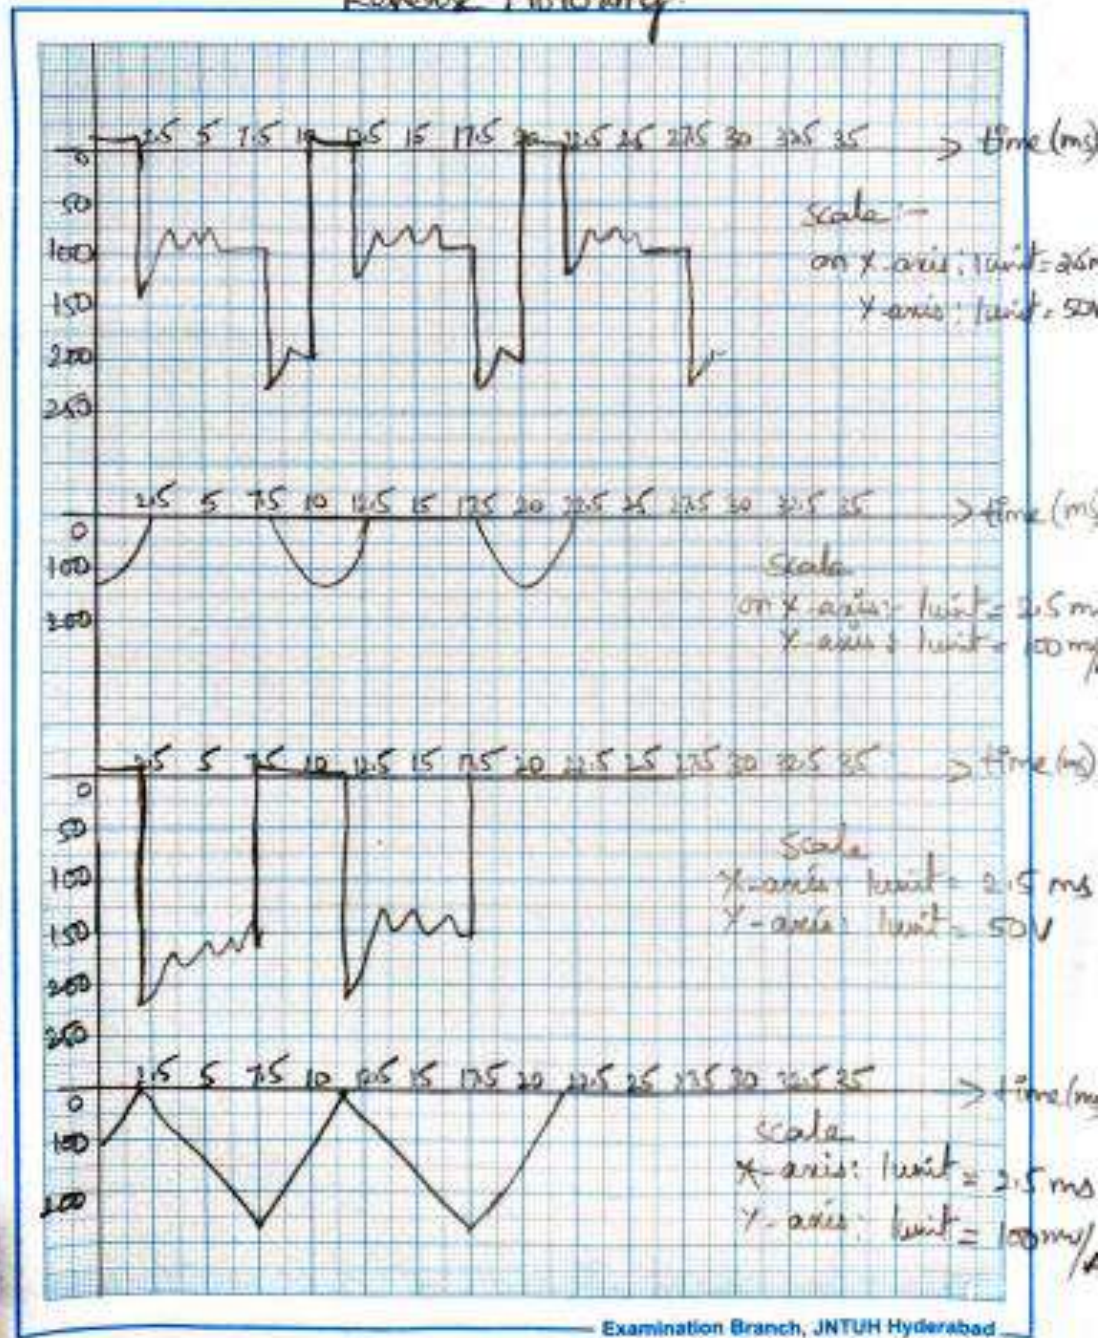 Motoring.
2.5 5 7.5 10 12.5 15 17.5 20 22.5 25 27.5 30 32.5 35 > time (ms)
0
50
100
150
200
250
scale :-
on X-axis: 1unit=
Y-axis: 1unit= 50V
2.5 5 7.5 10 12.5 15 17.5 20 22.5 25 27.5 30 32.5 35 > time (ms)
0
100
200
scale
on X-axis:- 1unit = 2.5 ms
Y-axis: 1unit = 100 mv/
2.5 5 7.5 10 12.5 15 17.5 20 22.5 25 27.5 30 32.5 35 > time (ms)
0
50
100
150
200
250
Scale
X-axis: 1unit = 2.5 ms
Y-axis: 1unit = 50V
2.5 5 7.5 10 12.5 15 17.5 20 22.5 25 27.5 30 32.5 35 > time (ms)
0
100
200
scale
X-axis: 1unit = 2.5 ms
Y-axis: 1unit = 100mv/A
Examination Branch, JNTUH Hyderabad